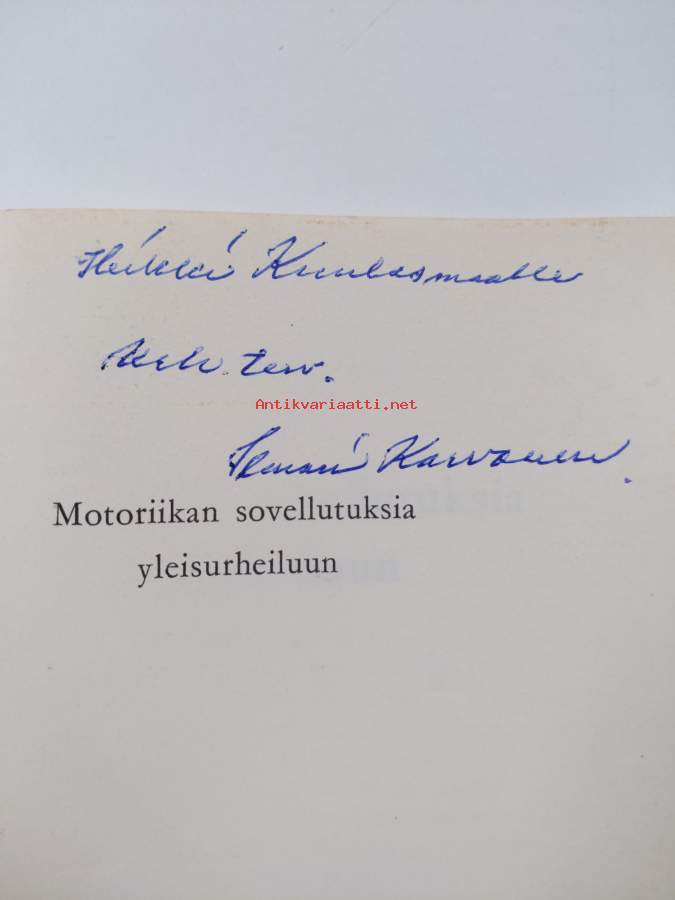 Heikki Kuulasmaalle
terv.
Antikvariaatti.net
Karvonen.
Motoriikan sovellutuksia
yleisurheiluun